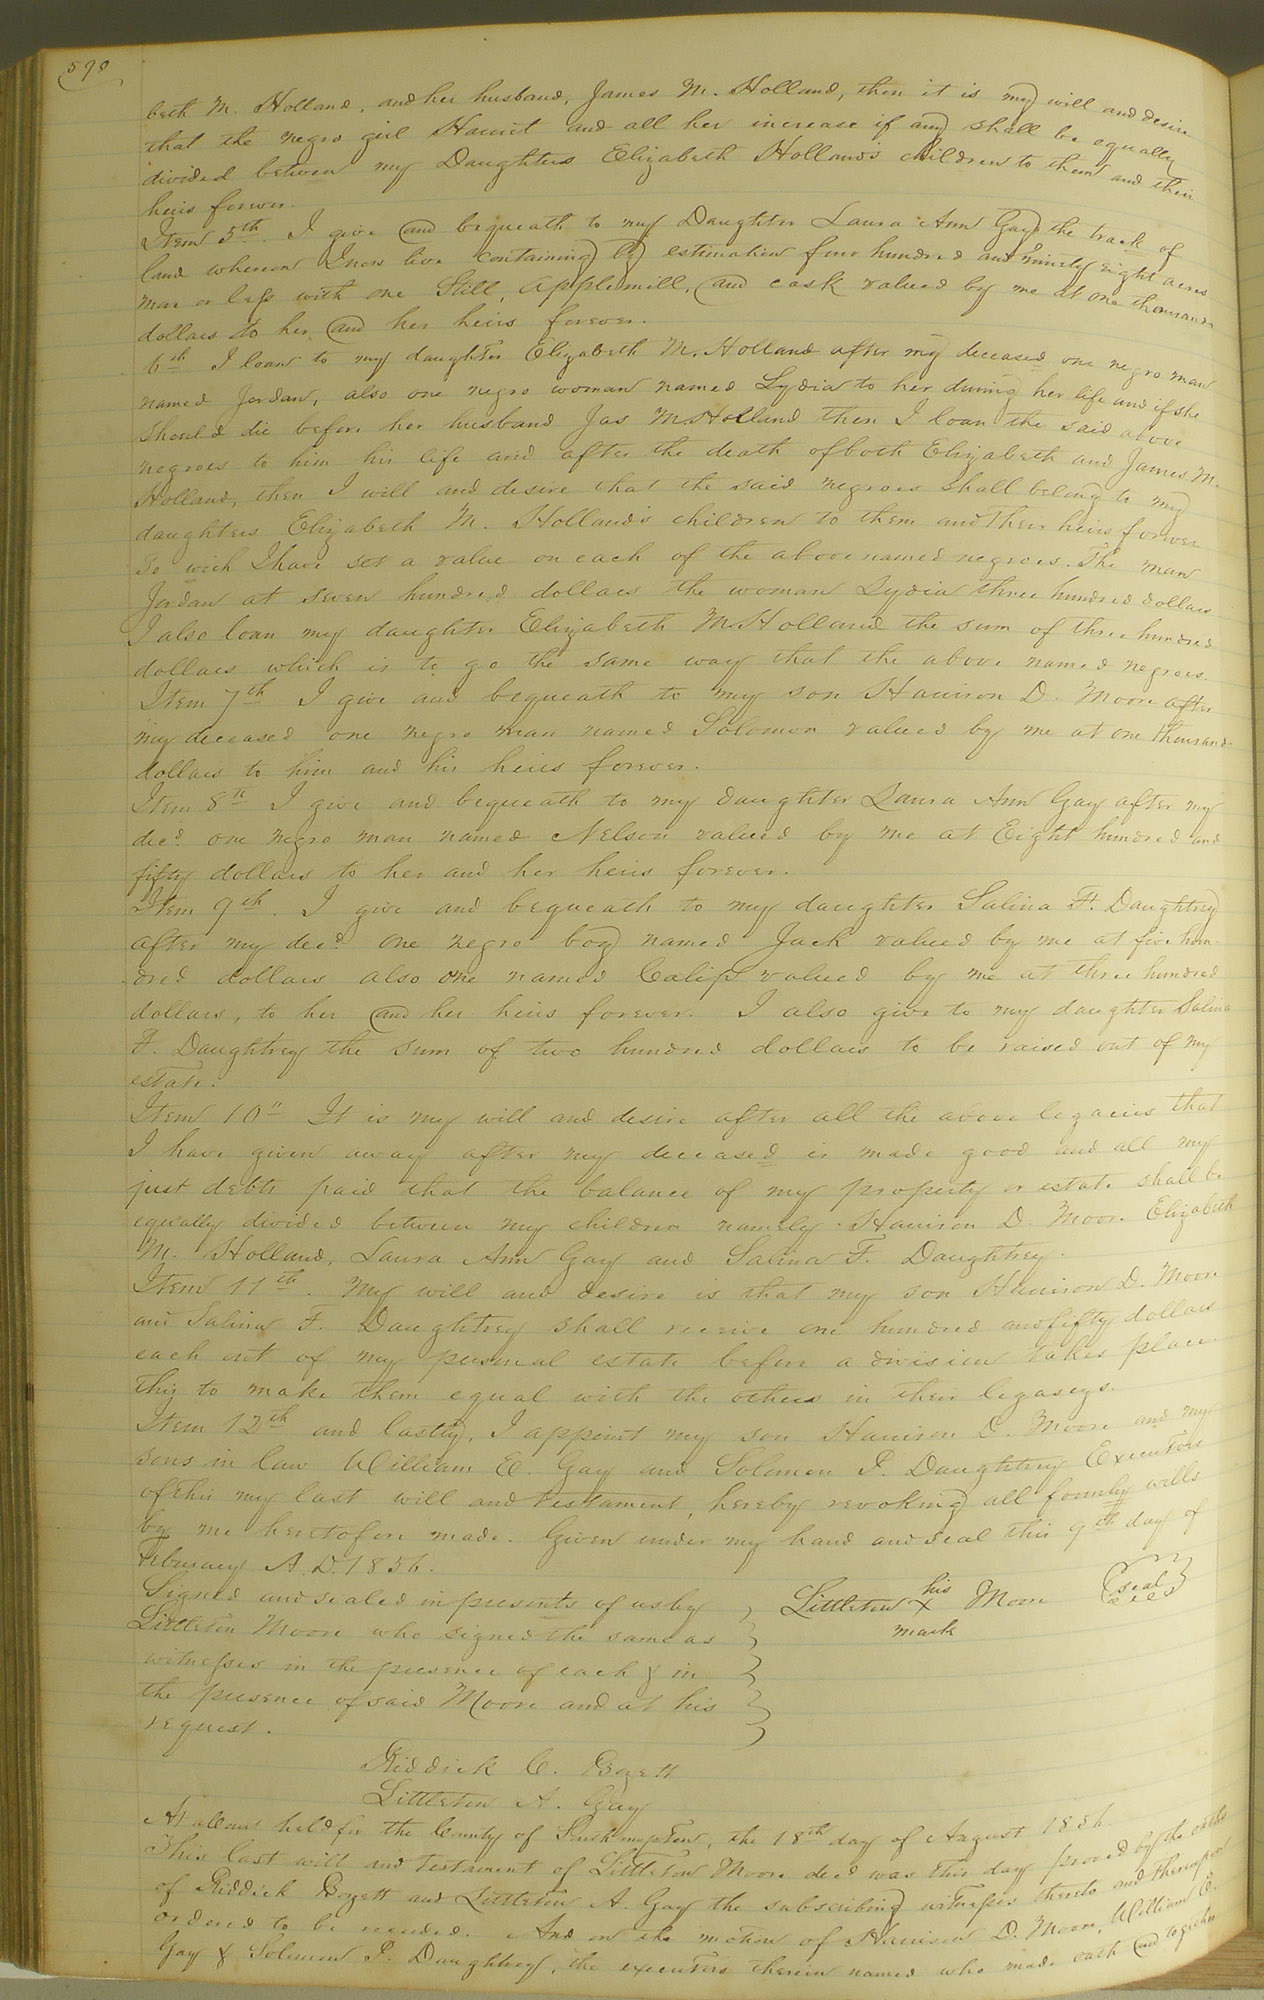 590
beth M. Holland, and her husband, James M. Holland, then it is my will and desire
that the negro girl Harriet and all her increase if any shall be equally
divided between my Daughters Elizabeth Holland's children to them and their
heirs forever.
Item 5th. I give and bequeath to my Daughter Laura Ann Gay the track of
land whereon I now live containing by estimation four hundred and ninety eight acres
more or less with one Still, applemill, and cask valued by me at one thousand
dollars to her and her heirs forever.
6th I loan to my daughter Elizabeth M. Holland after my deceased one negro man
named Jordan, also one negro woman named Lydia to her during her life and if she
should die before her husband Jas M. Holland then I loan the said above
negroes to him his life and after the death of both Elizabeth and James M.
Holland, then I will and desire that the said negroes shall belong to my
daughters Elizabeth M. Holland's children to them and their heirs forever
To wich I have set a value on each of the above named negroes. The man
Jordan at seven hundred dollars the woman Lydia three hundred dollars
I also loan my daughter Elizabeth M. Holland the sum of three hundred
dollars which is to go the same way that the above named negroes.
Item 7th I give and bequeath to my son Harrison D. Moore after
my deceased one negro man named Solomon valued by me at one thousand
dollars to him and his heirs forever.
Item 8th I give and bequeath to my daughter Laura Ann Gay after my
decd. one negro man named Nelson valued by me at Eight hundred and
fifty dollars to her and her heirs forever.
Item 9th. I give and bequeath to my daughter Salina F. Daughtrey
after my decd. one negro boy named Jack valued by me at five hun-
dred dollars also one named valued by me at three hundred
dollars, to her and her heirs forever. I also give to my daughter Salina
F. Daughtrey the sum of two hundred dollars to be raised out of my
estate.
Item 10" It is my will and desire after all the above legacies that
I have given away after my deceased is made good and all my
just debts paid that the balance of my property or estate shall be
equally divided between my children namely. Harrison D. Moore Elizabeth
M. Holland, Laura Ann Gay and Salina F. Daughtrey.
Item 11th. My will and desire is that my son Harrison D. Moore
and Salina F. Daughtrey shall receive one hundred and fifty dollars
each out of my personal estate before a division takes place
this to make them equal with the others in their legasys.
Item 12th and lastly, I appoint my son Harrison D. Moore and my
sons in law William E. Gay and Solomon P. Daughtrey Executors
of this my last will and testament, hereby revoking all wills
by me heretofore made. Given under my hand and seal this 9th day of
February A.D. 1856.
Signed and sealed in presents of us by
Littleton his X mark Moore (seal)
Littleton Moore who signed the same as
witnesses in the presence of each & in
the presence of said Moore and at his
request.
Riddick C. Bozett
Littleton A. Gay
At a Court held for the County of Southampton, the 18th day of August 1856.
This last will and testament of Littleton Moore decd was this day proved by the oaths
of Riddick Bozett and Littleton A. Gay the subscribing witnesses thereto and thereupon
ordered to be recorded. And on the motion of Harrison D. Moore, William E.
Gay & Solomon P. Daughtrey, the executors therein named who made oath and together